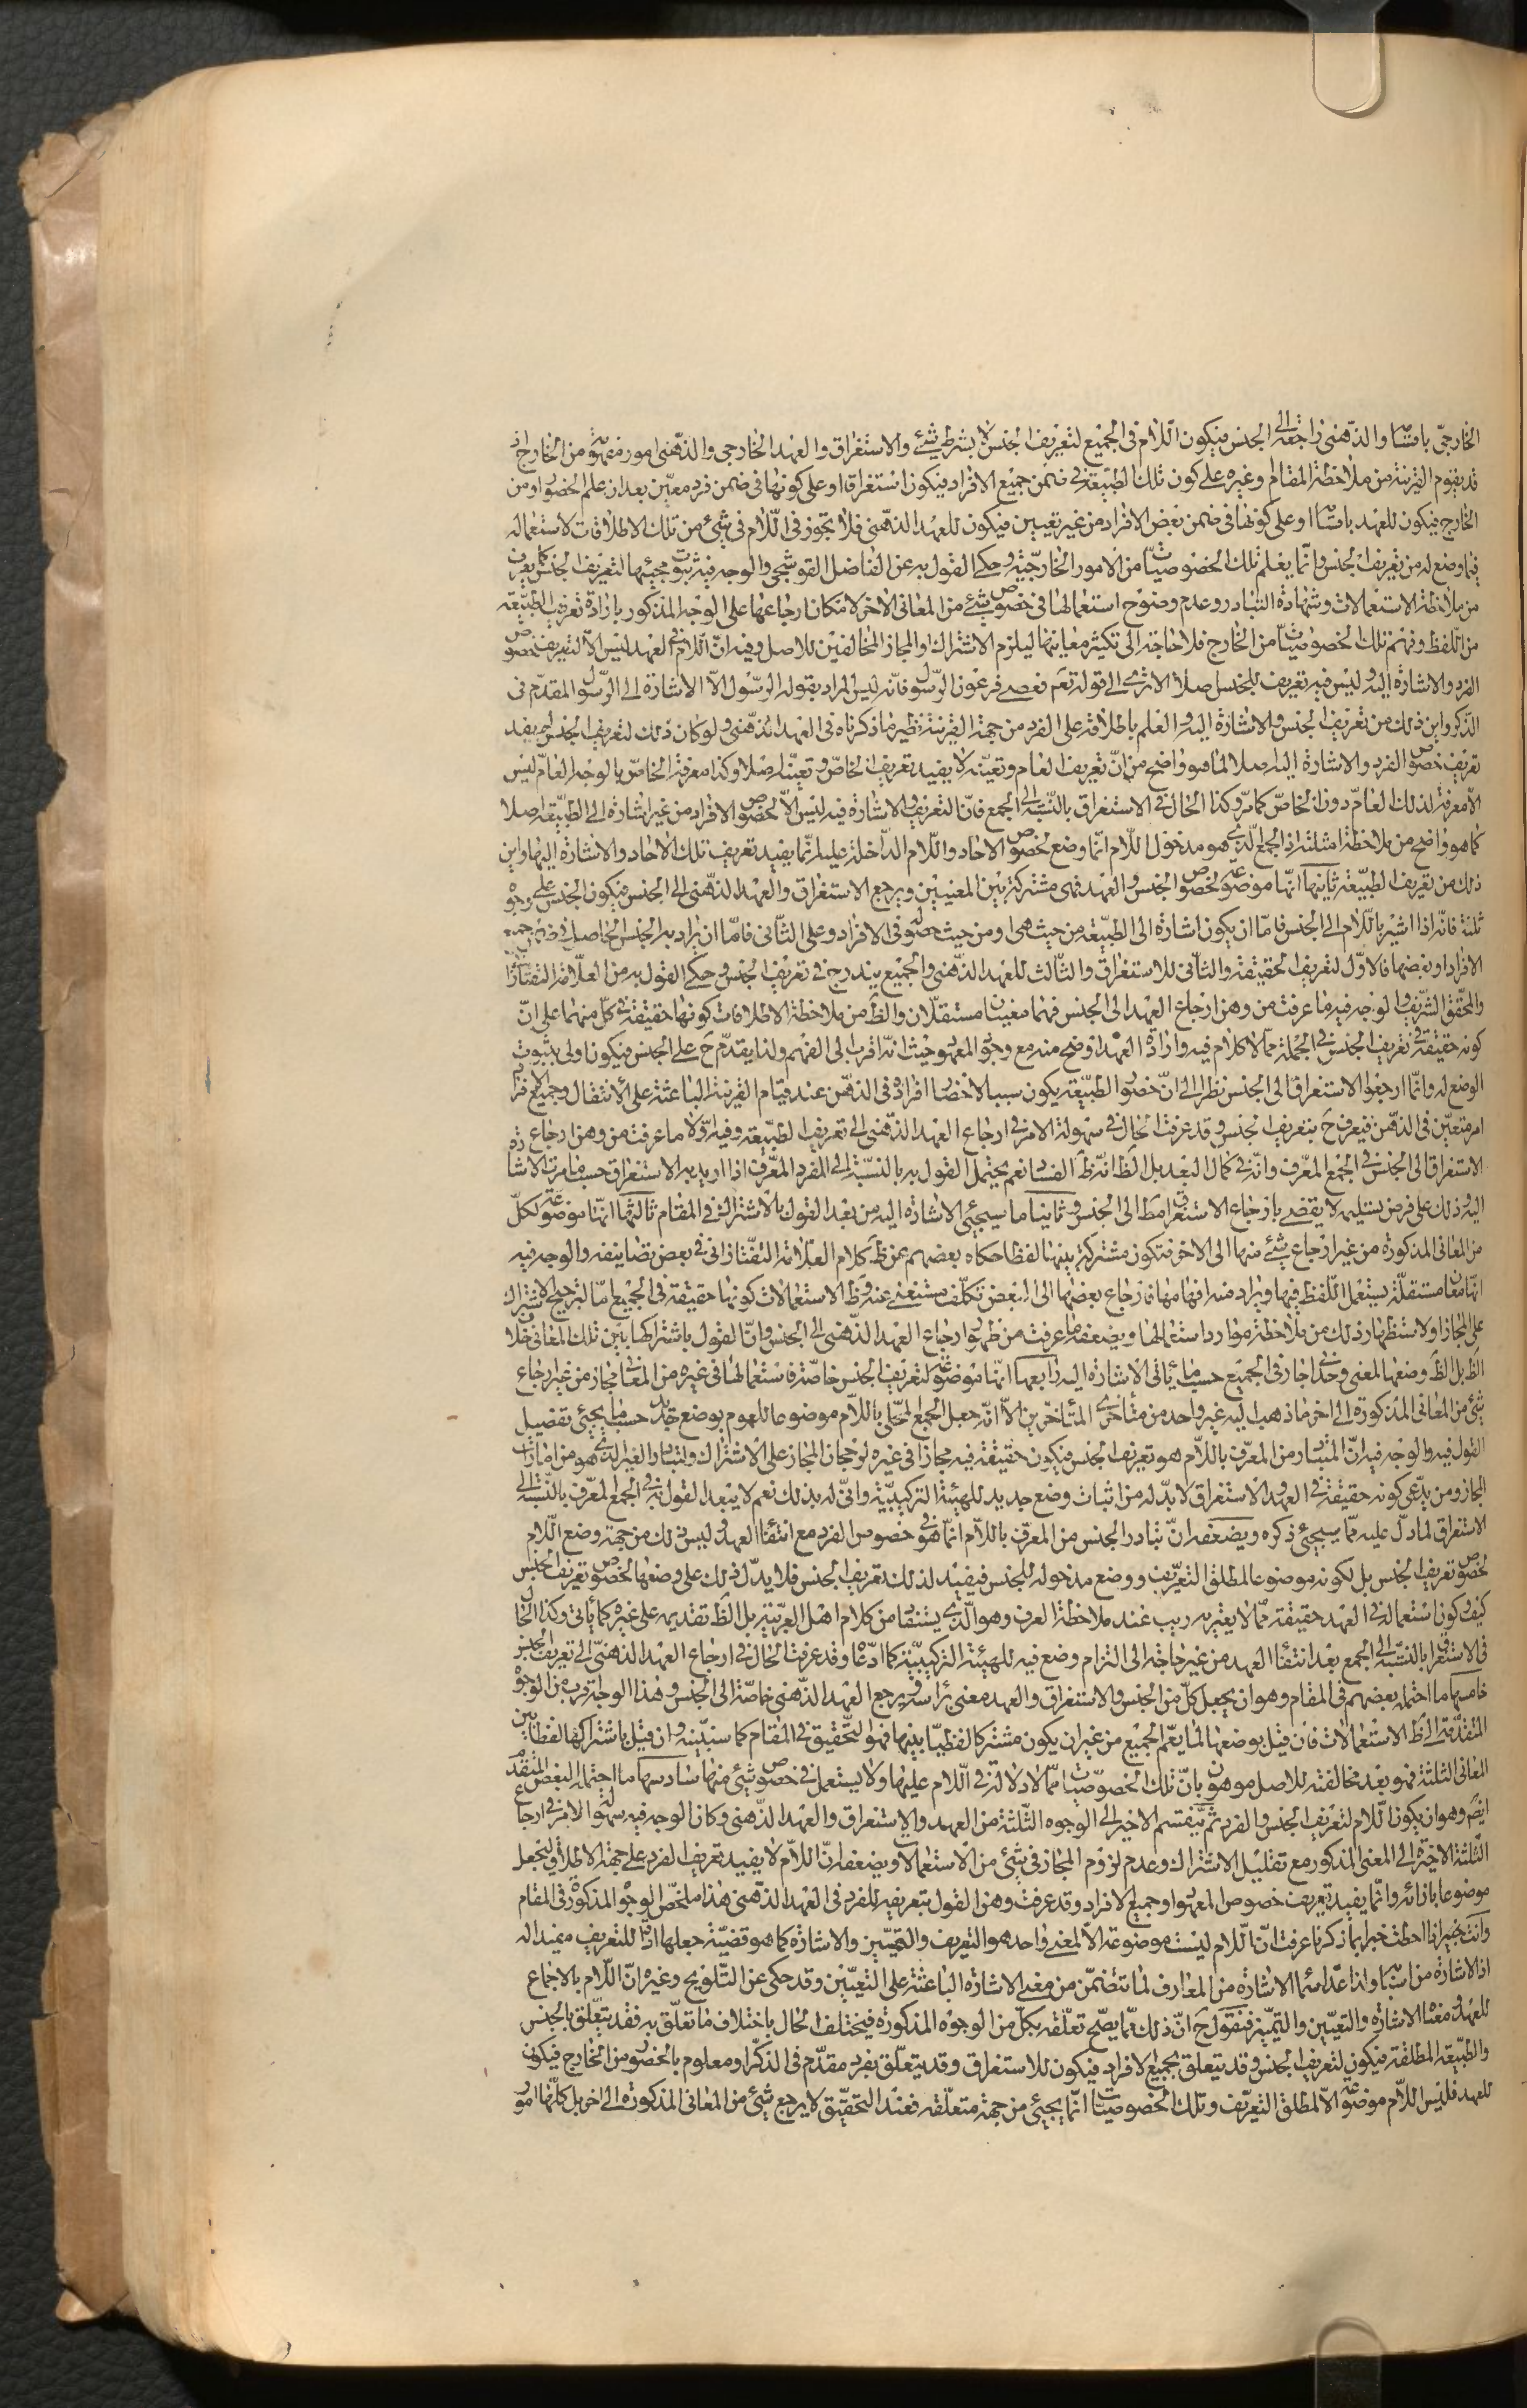 الخارجىّ باقسامها والذّهنى راجعة الى الجنس فيكون اللّام فى الجميع لتعريف الجنس لا بشرط شئ والاستغراق والعهد الخارجى والذّهنى امور مفهومة من الخارج اذ
قد يقوم القرينة من ملاحظة المقام وغيره على كون تلك الطبيعة فى ضمن جميع الافراد فيكون استغراقا او على كونها فى ضمن فرد معيّن بعد ان علم الخصوص او من
الخارج فيكون للعهد باقسامها او على كونها فى ضمن بعض الافراد من غير تعيين فيكون للعهد الذهنى فلا تجوز فى اللّام فى شئ من تلك الاطلاقات لاستعماله
فيما وضع له من تعريف الجنس وانّما يعلم تلك الخصوصيّات من الامور الخارجيّة وحكى القول به عن الفاضل القوشجى والوجه فيه ثبوت مجيئها لتعريف الجنس كما يعرف
من ملاحظة الاستعمالات وشهادة التبادر وعدم وضوح استعمالها فى خصوص شئ من المعانى الاخر لامكان ارجاعها على الوجه المذكور بارادة تعريف الطبيعة
من اللّفظ وفهم تلك الخصوصيّات من الخارج فلا حاجة الى تكثير معانيها ليلزم الاشتراك او المجاز المخالفين للاصل وفيه انّ اللّام فى العهد ليس الّا لتعريف خصوص
الفرد والاشارة اليه وليس فيه تعريف للجنس اصلا الا ترى الى قوله تعم فعصى فرعون الرّسول فانّه ليس المراد بقوله الرّسول الّا الاشارة الى الرّسول المقدّم فى
الذّكر واين ذلك من تعريف الجنس والاشارة اليه والعلم باطلاقه على الفرد من جهة القرينة نظير ما ذكرناه فى العهد الذّهنى ولو كان ذلك لتعريف الجنس لم يفد
تعريف خصوص الفرد والاشارة اليه اصلا لما هو واضح من انّ تعريف العام وتعيّنه لا يفيد تعريف الخاصّ وتعيّنه اصلا وكذا معرفة الخاصّ بالوجه العامّ ليس
الّا معرفة لذلك العامّ دون الخاصّ كما مرّ وكذا الحال فى الاستغراق بالنّسبة الى الجمع فانّ التعريف والاشارة فيه ليس الّا لخصوص الافراد من غير اشارة الى الطبيعة اصلا
كما هو واضح من ملاحظة امثلته اذ الجمع الّذى هو مدخول اللّام انّما وضع لخصوص الاحاد واللّام الدّاخلة عليه انّما يفيد تعريف تلك الاحاد والاشارة اليها واين
ذلك من تعريف الطبيعة ثانيها انّها موضوعة لخصوص الجنس والعهد فهى مشتركة بين المعنيين ويرجع الاستغراق والعهد الذّهنى الى الجنس فيكون الجنس على وجوه
ثلثة فانّه اذا اشير باللّام الى الجنس فامّا ان يكون اشارة الى الطبيعة من حيث هى او من حيث حصوله فى الافراد وعلى الثّانى فامّا ان يراد به الجنس الحاصل فى ضمن جميع
الافراد او بعضها فالاوّل لتعريف الحقيقة والثانى للاستغراق والثّالث للعهد الذّهنى والجميع يندرج فى تعريف الجنس وحكى القول به من العلّامة التفتازانى
والمحقّق الشّريف والوجه فيه ما عرفت من وهن ارجاع العهد الى الجنس فهما معنيان مستقلّان والظ من ملاحظة الاطلاقات كونها حقيقة فى كلّ منهما على انّ
كونه حقيقة فى تعريف الجنس فى الجملة ممّا لا كلام فيه وارادة العهد اوضح منه مع وجود المعهود حيث انّه اقرب الى الفهم ولذا يقدّم ح على الجنس فيكون اولى بثبوت
الوضع له وانّما ارجعوا الاستغراق الى الجنس نظرا الى انّ حضور الطبيعة يكون سببا لاحضار افراده فى الذّهن عند قيام القرينة الباعثة على الانتقال وجميع الافراد
امر متعيّن فى الذّهن فيعرف ح بتعريف الجنس وقد عرفت الحال فى سهولة الامر فى ارجاع العهد الذّهنى الى تعريف الطبيعة وفيه اوّلا ما عرفت من وهن ارجاع
الاستغراق الى الجنس فى الجمع المعرّف وانّه فى كمال البعد بل الظ انّه ظ الفساد نعم يحتمل القول به بالنّسبة الى المفرد المعرّف اذا اريد به الاستغراق حسبما مرت الاشارة
اليه وذلك على فرض تسليمه لا يقضى بارجاع الاستغراق مط الى الجنس وثانيا ما سيجئ الاشارة اليه من بعد القول بالاشتراك فى المقام ثالثها انّها موضوعة لكلّ
من المعانى المذكورة من غير ارجاع شئ منها الى الاخر فتكون مشتركة بينها لفظا حكاه بعضهم عن ظ كلام العلّامة التفتازانى فى بعض تصانيفه والوجه فيه
انّها معان مستقلّة يستعمل اللّفظ فيها ويراد منه افهامها فارجاع بعضها الى البعض تكلّف مستغنى عنه وظ الاستعمالات كونها حقيقة فى الجميع امّا لترجيح الاشتراك
على المجاز او لاستظهار ذلك من ملاحظة موارد استعمالها ويضعفه ما عرفت من ظهور ارجاع العهد الذّهنى الى الجنس وانّ القول باشتراكها بين تلك المعانى خلاف
الظ بل الظ وضعها لمعنى وحدانى جاز فى الجميع حسبما يأتى الاشارة اليه رابعها انّها موضوعة لتعريف الجنس خاصّة فاستعمالها فى غيره من المعانى مجاز من غير ارجاع
شئ من المعانى المذكورة الى اخر ما ذهب اليه غير واحد من متأخرى المتأخّرين الّا انّه جعل الجمع المحلّى باللّام موضوعا للعموم بوضع جديد حسبما يجئ تفصيل
القول فيه والوجه فيه انّ المتبادر من المعرّف باللّام هو تعريف الجنس فيكون حقيقة فيه مجازا فى غيره لرجحان المجاز على الاشتراك ولتبادر الغير الذى هو من امارات
المجاز ومن يدّعى كونه حقيقة فى العهد والاستغراق لا بدّ له من اثبات وضع جديد للهيئة التركيبيّة وانّى له بذلك نعم لا يبعد القول به فى الجمع المعرّف بالنّسبة الى
الاستغراق لما دلّ عليه ممّا سيجئ ذكره ويضعفه انّ تبادر الجنس من المعرّف باللّام انّما هو فى خصوص المفرد مع انتفاء العهد وليس ذلك من جهة وضع اللّام
لخصوص تعريف الجنس بل لكونه موضوعا لمطلق التعريف ووضع مدخوله للجنس فيفيد لذلك تعريف الجنس فلا يدلّ ذلك على وضعها لخصوص تعريف الجنس
كيف وكون استعماله فى العهد حقيقة ممّا لا يعتريه ريب عند ملاحظة العرف وهو الّذى يستفاد من كلام اهل العربيّة بل الظ تقديمه على غيره كما يأتى وكذا الحال
فى الاستغراق بالنّسبة الى الجمع بعد انتفاء العهد من غير حاجة الى التزام وضع فيه للهيئة التركيبيّة كما ادّعاه وقد عرفت الحال فى ارجاع العهد الذّهنىّ الى تعريف الجنس
خامسها ما احتمله بعضهم فى المقام وهو ان يجعل كلّ من الجنس والاستغراق والعهد معنى برأسه ويرجع العهد الذّهنى خاصّة الى الجنس وهذا الوجه اقرب من الوجوه
المتقدّمة الى ظ الاستعمالات فان قيل بوضعها لما يعمّ الجميع من غير ان يكون مشتركا لفظيّا بينها فهو التّحقيق فى المقام كما سنبيّنه وان قيل باشتراكها لفظا بين
المعانى الثلثة فهو بعد مخالفته للاصل موهون بانّ تلك الخصوصيّات ممّا لا دلالة فى اللّام عليها ولا يستعمل فى خصوص شئ منها سادسها ما احتمله البعض المتقدّم
ايضا وهو ان يكون اللّام لتعريف الجنس والفرد ثم ينقسم الاخير الى الوجوه الثّلثة من العهد والاستغراق والعهد الذّهنى وكان الوجه فيه سهولة الامر فى ارجاع
الثّلثة الاخيرة الى المعنى المذكور مع تقليل الاشتراك وعدم لزوم المجاز فى شئ من الاستعمالات ويضعفه انّ اللّام لا يفيد تعريف الفرد على جهة الاطلاق ليجعل
موضوعا بازائه وانّما يفيد تعريف خصوص المعهود او جميع الافراد وقد عرفت وهن القول بتعريفه للفرد فى العهد الذهنى هذا ملخّص الوجوه المذكورة فى المقام
وانت خبير اذا احطت خبرا بما ذكرنا عرفت انّ اللّام ليست موضوعة الّا لمعنى واحد هو التعريف والتّعيين والاشارة كما هو قضيّة جعلها اداة للتعريف مفيدا له
اذ الاشارة من اسبابها ولذا عدّ اسماء الاشارة من المعارف لما تتضمّن من معنى الاشارة الباعثة على التعيين وقد حكى عن التّلويح وغيره انّ اللّام بالاجماع
للعهد ومعناه الاشارة والتعيين والتّميز فنقول ح انّ ذلك ممّا يصّح تعلّقه بكلّ من الوجوه المذكورة فيختلف الحال باختلاف ما تعلّق به فقد يتعلّق بالجنس
والطبيعة المطلقة فيكون لتعريف الجنس وقد يتعلق بجميع الافراد فيكون للاستغراق وقد يتعلّق بفرد مقدّم فى الذّكر او معلوم بالحضور من الخارج فيكون
للعهد فليس اللّام موضوعة الّا لمطلق التعريف وتلك الخصوصيّات انّما يجئ من جهة متعلّقه فعند التحقيق لا يرجع شئ من المعانى المذكورة الى اخر بل كلّها امور